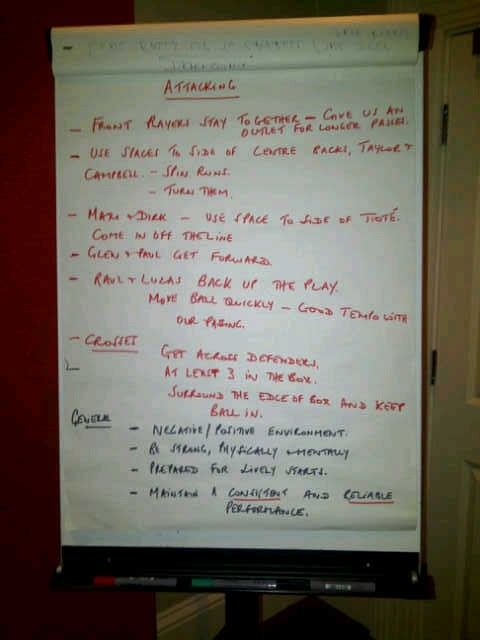 ATTACKING
- FRONT PLAYERS STAY TOGETHER - GIVE US AN
OUTLET FOR LONGER PASSES.
- USE SPACES TO SIDE OF CENTRE BACKS, TAYLOR +
CAMPBELL. - SPIN RUNS.
- TURN THEM.
- MAXI + DIRK - USE SPACE TO SIDE OF TIOTÉ.
COME IN OFF THE LINE
- GLEN + PAUL GET FORWARD.
- RAUL + LUCAS BACK UP THE PLAY.
MOVE BALL QUICKLY - GOOD TEMPO WITH
OUR PASSING.
- CROSSES
GET ACROSS DEFENDERS,
AT LEAST 3 IN THE BOX.
SURROUND THE EDGE OF BOX AND KEEP
BALL IN.
GENERAL
- NEGATIVE/POSITIVE ENVIRONMENT.
- BE STRONG, PHYSICALLY + MENTALLY
- PREPARED FOR LIVELY STARTS.
- MAINTAIN A CONSISTENT AND RELIABLE
PERFORMANCE.